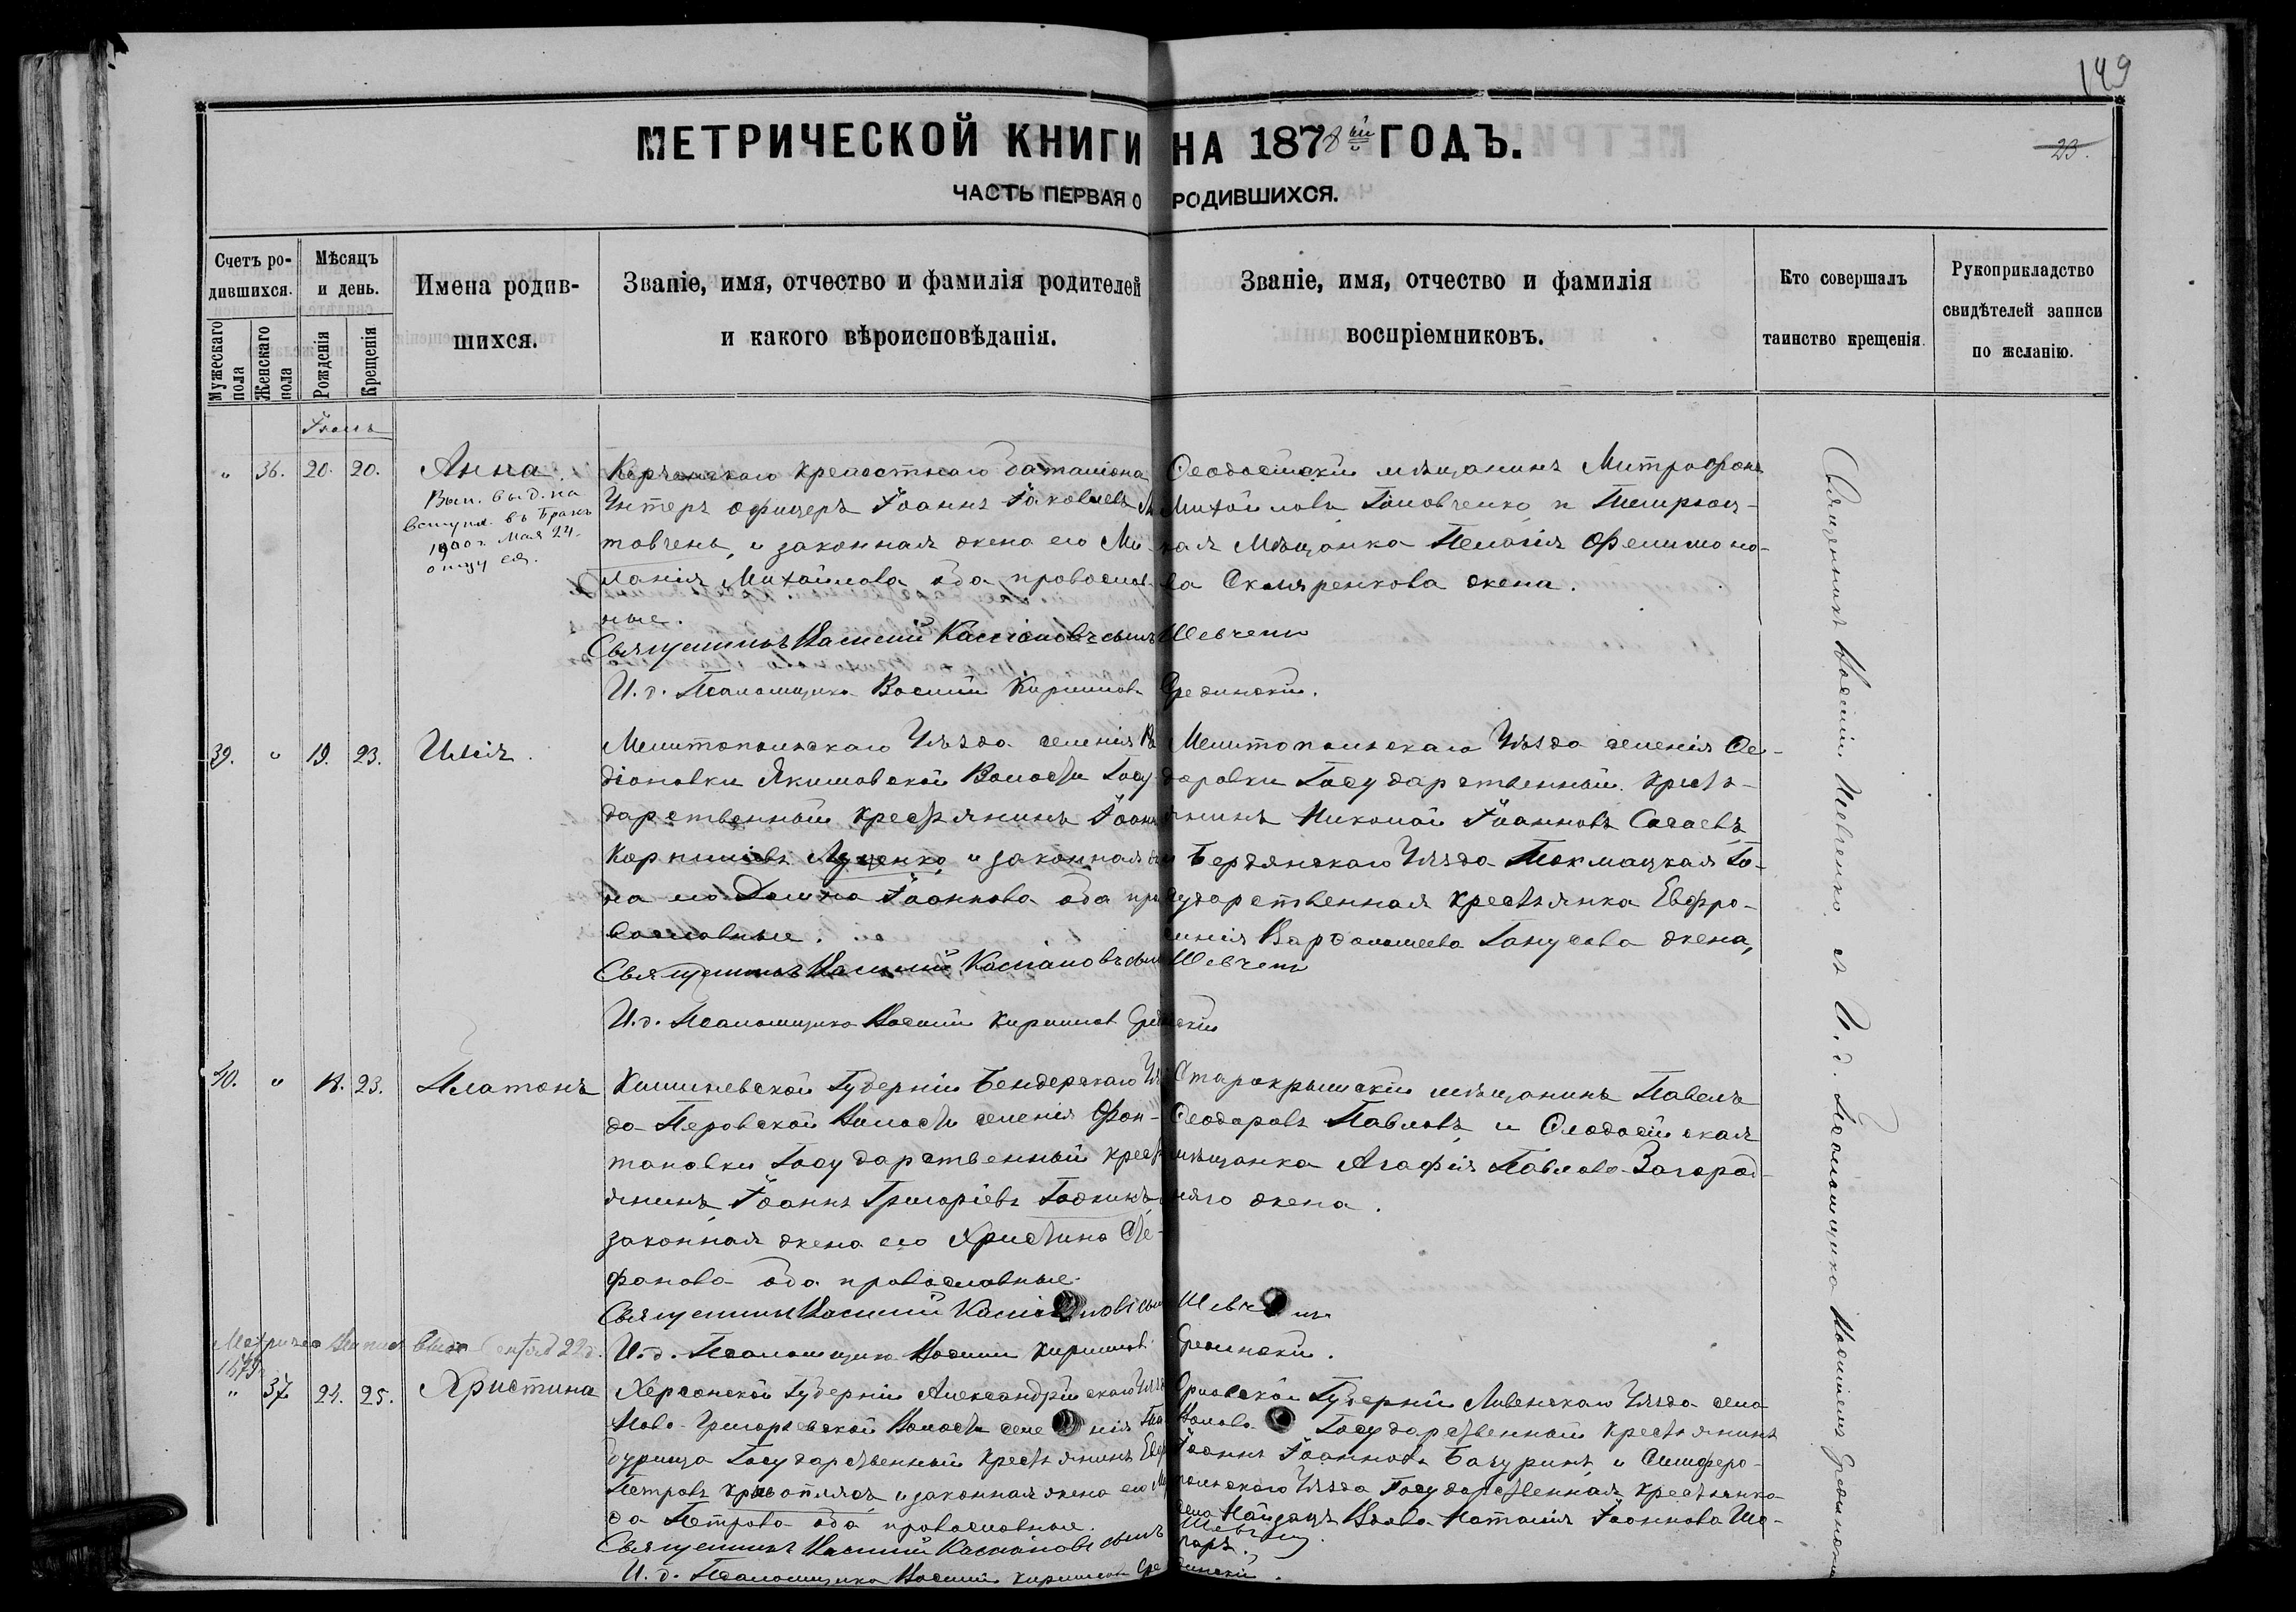 149
МЕТРИЧЕСКОЙ КНИГИ НА 1878ый ГОДЪ.
23.
ЧАСТЬ ПЕРВАЯ О РОДИВШИХСЯ.
Счетъ ро-
дившихся.
Мужескаго
пола
Женскаго
пола
Мѣсяцъ
и день.
Рожденія
Крещенія
Имена родив-
шихся.
Званіе, имя, отчество и фамилія родителей
и какого вѣроисповѣданія.
Званіе, имя, отчество и фамилія
воспріемниковъ.
Кто совершалъ
таинство крещенія.
Рукоприкладство
свидѣтелей записи
по желанію.
" 36. 20. 20. Анна.
Вып. выд. на
вступл. въ бракъ
1900 г. Мая 24.
отцу ея.
Керченскаго крепостнаго баталіона
Унтеръ офицеръ Іоаннъ Іаковлевъ
товченъ, и законная жена его Ме-
ланія Михайлова оба православ-
ные.
Священникъ Василій Кассіановъ сынъ Шевченко
И. д. Псаломщика Василій Кирилловъ Срединскій.
Ѳеодосійскій мѣщанинъ Митрофанъ
Михайловъ Головченко и Темрюц-
кая Мѣщанка Пелагія Филимоно-
ва Скляренкова жена.
39. " 19. 23. Илія.
Мелитопольскаго Уѣзда селенія
діоновки Якимовской Волости Госу-
дарственный крестьянинъ Іоаннъ
Корниліевъ Луценко и законная же-
на его Домна Іоаннова оба пра-
вославные.
Священникъ Василій Кассіановъ сынъ Шевченко
И. д. Псаломщика Василій Кирилловъ Срединскій
Мелитопольскаго Уѣзда селенія Ѳе-
доровки Государственный крестья-
янинъ Николай Іоанновъ
Бердянскаго Уѣзда Токмацкая Го-
сударственная крестьянка Евфро-
синія Варѳоломеева жена,
40. " 18. 23. Платонъ
Кишиневской Губерніи Бендерскаго Уѣз-
да Петровской Волости селенія Фон-
тановки Государственный кресть-
янинъ, Іоаннъ Григоріевъ
законная жена его Христина Сте-
фанова оба православные.
Священникъ Василій Кассіановъ сынъ Шевченко
И. д. Псаломщика Василій Кирилловъ Срединскій.
Старокрымскій мѣщанинъ Павелъ
Ѳеодоровъ Павловъ, и Ѳеодосійская
мѣщанка Агафія Павлова Загород-
няго жена.
" 37 24. 25. Христина
Херсонской Губерніи Александрійскаго Уѣзда
Ново-Григорьевской Волости селенія
Государственный Крестьянинъ
Петровъ и законная жена его
Петрова оба православные.
Священникъ Василій Кассіановъ сынъ Шевченко
И. д. Псаломщика Василій Кирилловъ Срединскій.
Орловской Губерніи Ливенскаго Уѣзда села
Волова Государственный Крестьянинъ
Іоаннъ Іоанновъ Батуринъ, и Симферо-
польскаго Уѣзда Государственная Крестьянка
Наталія Іоаннова
Священникъ Василій Шевченко съ И. д. Псаломщика Василіемъ Срединскимъ